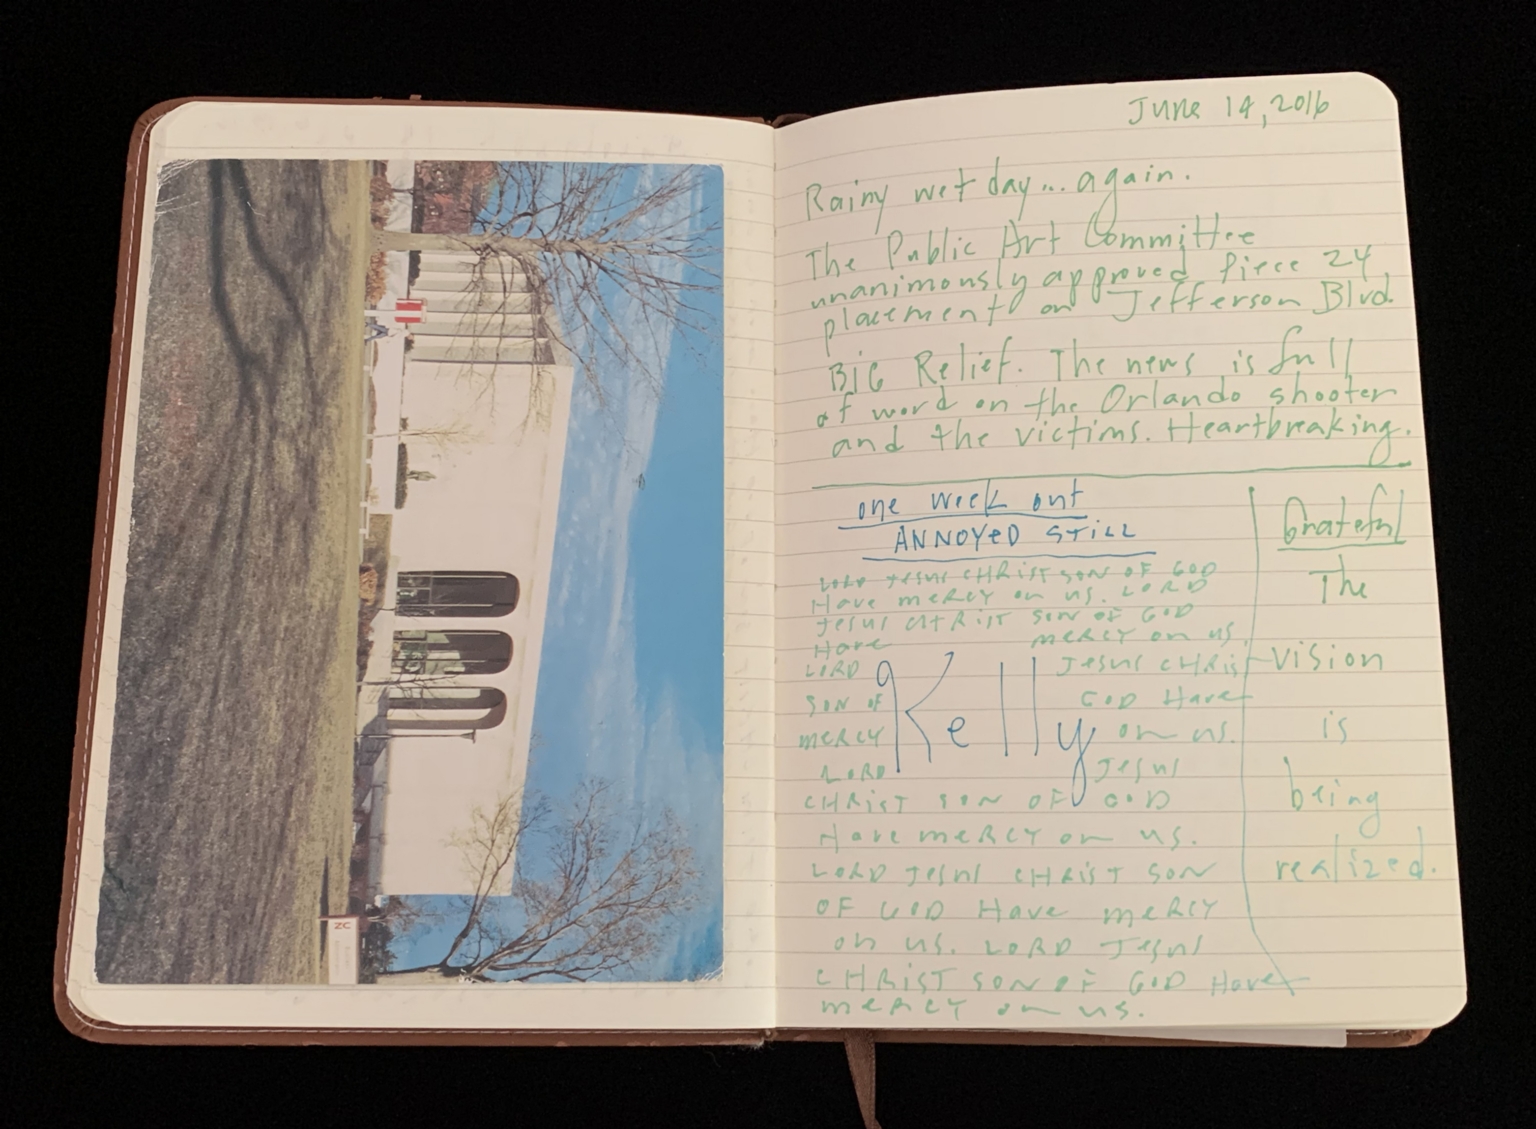 ZC
June 14, 2016
Rainy wet day... again.
The Public Art Committee
unanimously approved Piece 24
placement on Jefferson Blvd.
BIG Relief. The news is full
of word on the Orlando shooter
and the victims. Heartbreaking.
one week out
ANNOYED STILL
LORD JESUS CHRIST SON OF GOD
Have mercy on us. LORD
Jesus CHRIST SON OF GOD
Have mercy on us.
LORD Kelly Jesus CHRIST
SON OF GOD Have
mercy on us.
LORD Jesus
CHRIST SON OF GOD
Have mercy on us.
LORD Jesus CHRIST SON
OF GOD Have mercy
on us. LORD Jesus
CHRIST SON OF GOD Have
mercy on us.
Grateful
The
vision
is
being
realized.